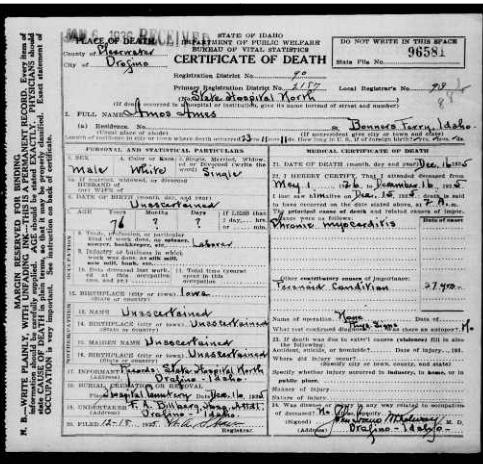 JAN 6 1936 RECEIVED
STATE OF IDAHO
DEPARTMENT OF PUBLIC WELFARE
BUREAU OF VITAL STATISTICS
CERTIFICATE OF DEATH
DO NOT WRITE IN THIS SPACE
96581
State File No.
PLACE OF DEATH
County of Clearwater
City of Orofino
Registration District No. 90
Primary Registration District No. 2157 Local Registrar's No. 98
State Hospital North
(If death occurred in a hospital or institution, give its name instead of street and number)
2. FULL NAME Amos Ames
(a) Residence. No. Bonners Ferry, Idaho.
(Usual place of abode) (If nonresident give city or town and state)
PERSONAL AND STATISTICAL PARTICULARS
3. SEX Male
4. Color or Race White
5. Single, Married, Widowed, or Divorced (write the word) Single
5a. If married, widowed, or divorced HUSBAND of (or) WIFE of
6. DATE OF BIRTH (month, day, and year) Unascertained
7. AGE Years 76 Months ? Days ? If LESS than 1 day, hrs. or min.
8. Trade, profession, or particular kind of work done, as spinner, sawyer, bookkeeper, etc. Laborer
9. Industry or business in which work was done, as silk mill, saw mill, bank, etc.
10. Date deceased last worked at this occupation (month and year)
11. Total time (years) spent in this occupation
12. BIRTHPLACE (city or town) Iowa
(State or country)
13. NAME Unascertained
14. BIRTHPLACE (city or town) Unascertained
(State or country)
15. MAIDEN NAME Unascertained
16. BIRTHPLACE (city or town) Unascertained
(State or country)
17. INFORMANT Records, State Hospital North
(Address) Orofino - Idaho.
18. BURIAL, CREMATION OR REMOVAL
Hospital Cemetery Date Dec. 16, 1935
19. UNDERTAKER
(Address) Orofino, Idaho
20. FILED 12-18, 1935
Registrar.
MEDICAL CERTIFICATE OF DEATH
21. DATE OF DEATH (month, day and year) Dec. 16 1935
22. I HEREBY CERTIFY, That I attended deceased from
May 1 26 to December 16, 1935
I last saw him alive on Dec. 16, 1935 death is said
to have occurred on the date stated above, at 7 A.m.
The principal cause of death and related causes of importance were as follows: Date of onset
Chronic myocarditis
Other contributory causes of importance:
Paranoid Condition 27 yrs.
Name of operation None Date of
What test confirmed diagnosis? Phys. Signs Was there an autopsy? No
23. If death was due to external causes (violence) fill in also the following:
Accident, suicide, or homicide? Date of injury 193
Where did injury occur?
(Specify city or town, county, and state)
Specify whether injury occurred in industry, in home, or in public place.
Manner of injury
Nature of injury
24. Was disease or injury in any way related to occupation of deceased? No
If so, specify
(Signed) M. D.
(Address) Orofino - Idaho
N. B.—WRITE PLAINLY, WITH UNFADING INK—THIS IS A PERMANENT RECORD. Every item of information should be carefully supplied. AGE should be stated EXACTLY. PHYSICIANS should state CAUSE OF DEATH in plain terms, so that it may be properly classified. Exact statement of OCCUPATION is very important. See instructions on back of certificate.
MARGIN RESERVED FOR BINDING